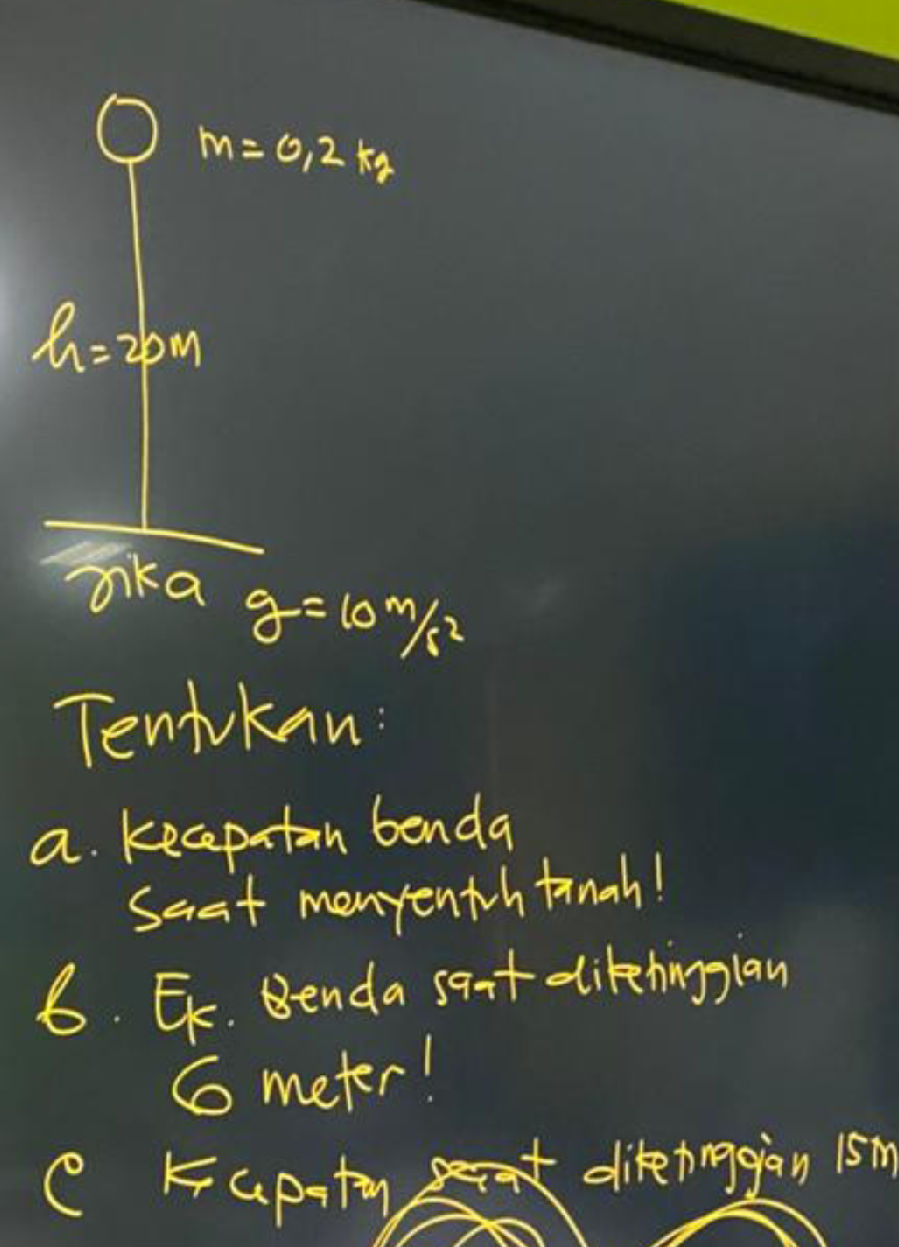 m = 0,2 kg
h = 20 m
Jika g = 10 m/s²
Tentukan:
a. Kecepatan benda
saat menyentuh tanah!
b. Ek. Benda saat diketinggian
6 meter!
c Kecepatan saat diketinggian 15 m